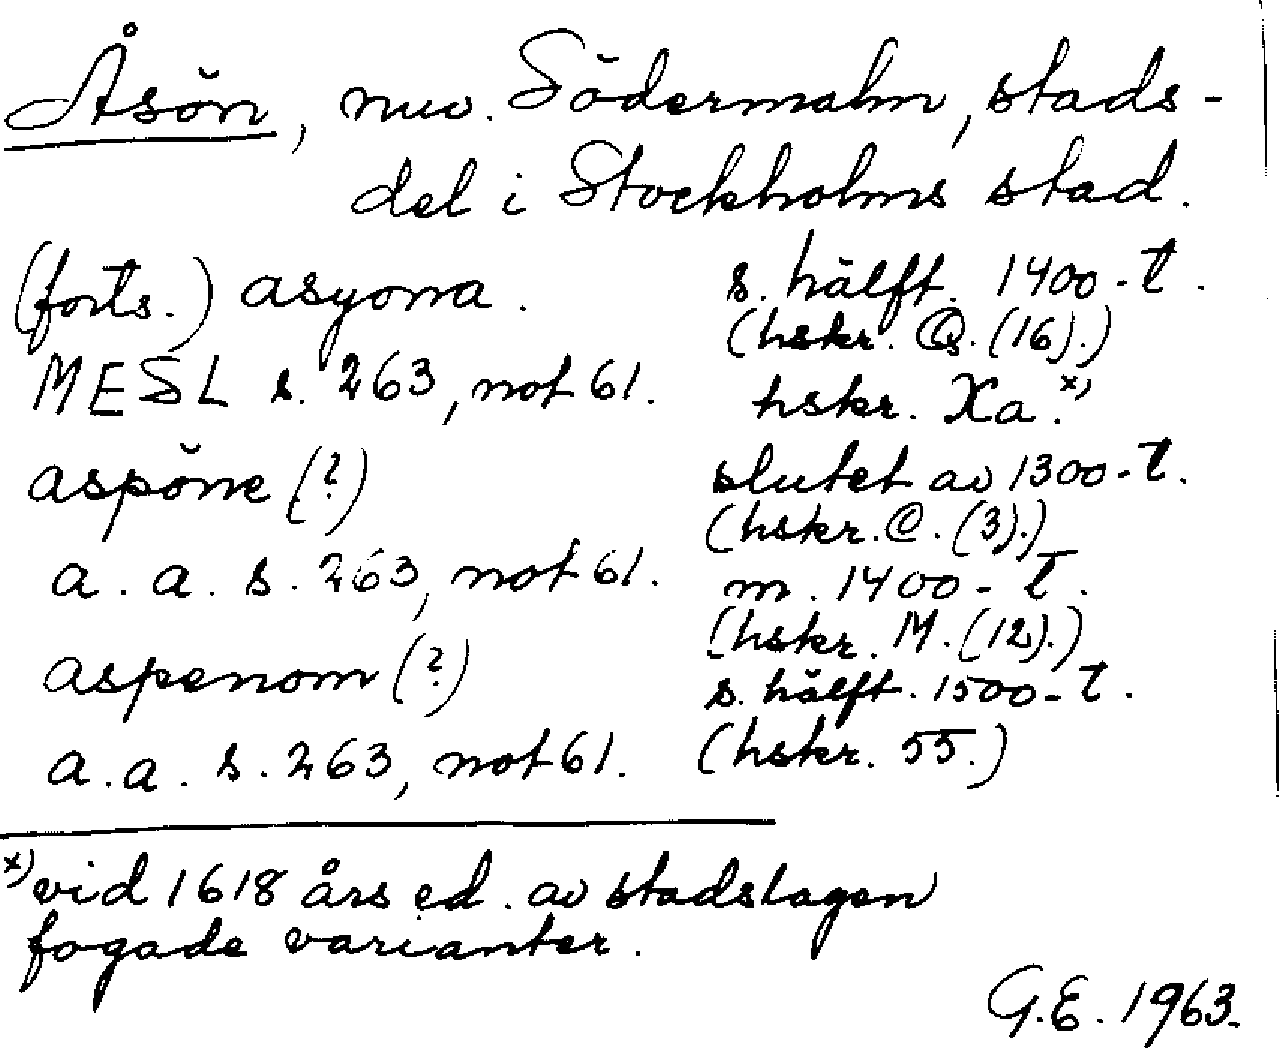 Åsön, nuv. Södermalm, stads-
del i Stockholms stad.
(forts.) asyona. s. hälft. 1400-t.
(hskr. Q. (16).)
MESL s. 263, not 61. hskr. Xa.x)
aspöne (?) slutet av 1300-t.
(hskr. C. (3).)
a. a. s. 263, not 61. m. 1400-t.
(hskr. M. (12).)
aspenom (?) s. hälft. 1500-t.
a. a. s. 263, not 61. (hskr. 55.)
x) vid 1618 års ed. av stadslagen
fogade varianter.
G.E. 1963.